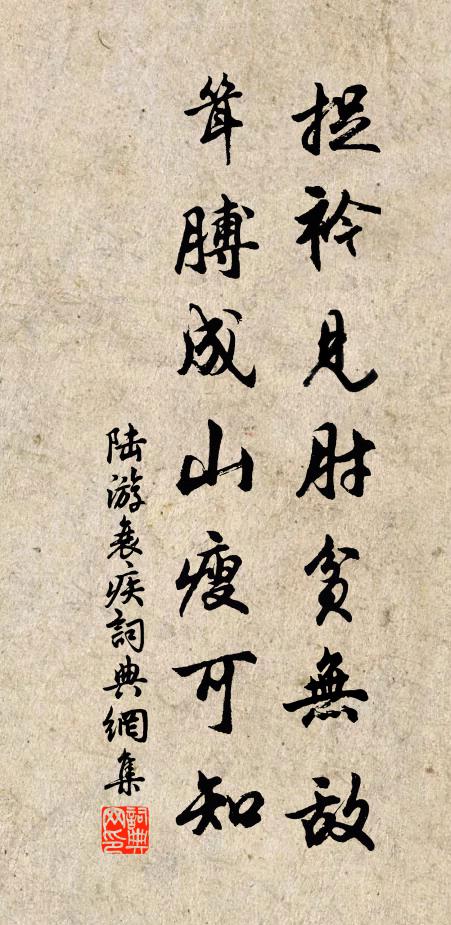 捉衿見肘貧無敌
耸膊成山瘦可知
陆游衰疾詞典網集
詞典網印